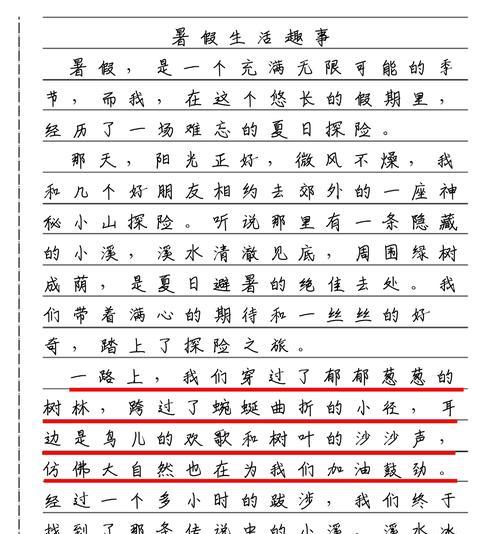 暑假生活趣事
暑假，是一个充满无限可能的季
节，而我，在这个悠长的假期里，
经历了一场难忘的夏日探险。
那天，阳光正好，微风不燥，我
和几个好朋友相约去郊外的一座神
秘小山探险。听说那里有一条隐藏
的小溪，溪水清澈见底，周围绿树
成荫，是夏日避暑的绝佳去处。我
们带着满心的期待和一丝丝的好
奇，踏上了探险之旅。
一路上，我们穿过了郁郁葱葱的
树林，跨过了蜿蜒曲折的小径，耳
边是鸟儿的欢歌和树叶的沙沙声，
仿佛大自然也在为我们加油鼓劲。
经过一个多小时的跋涉，我们终于
找到了那条传说中的小溪。溪水冰